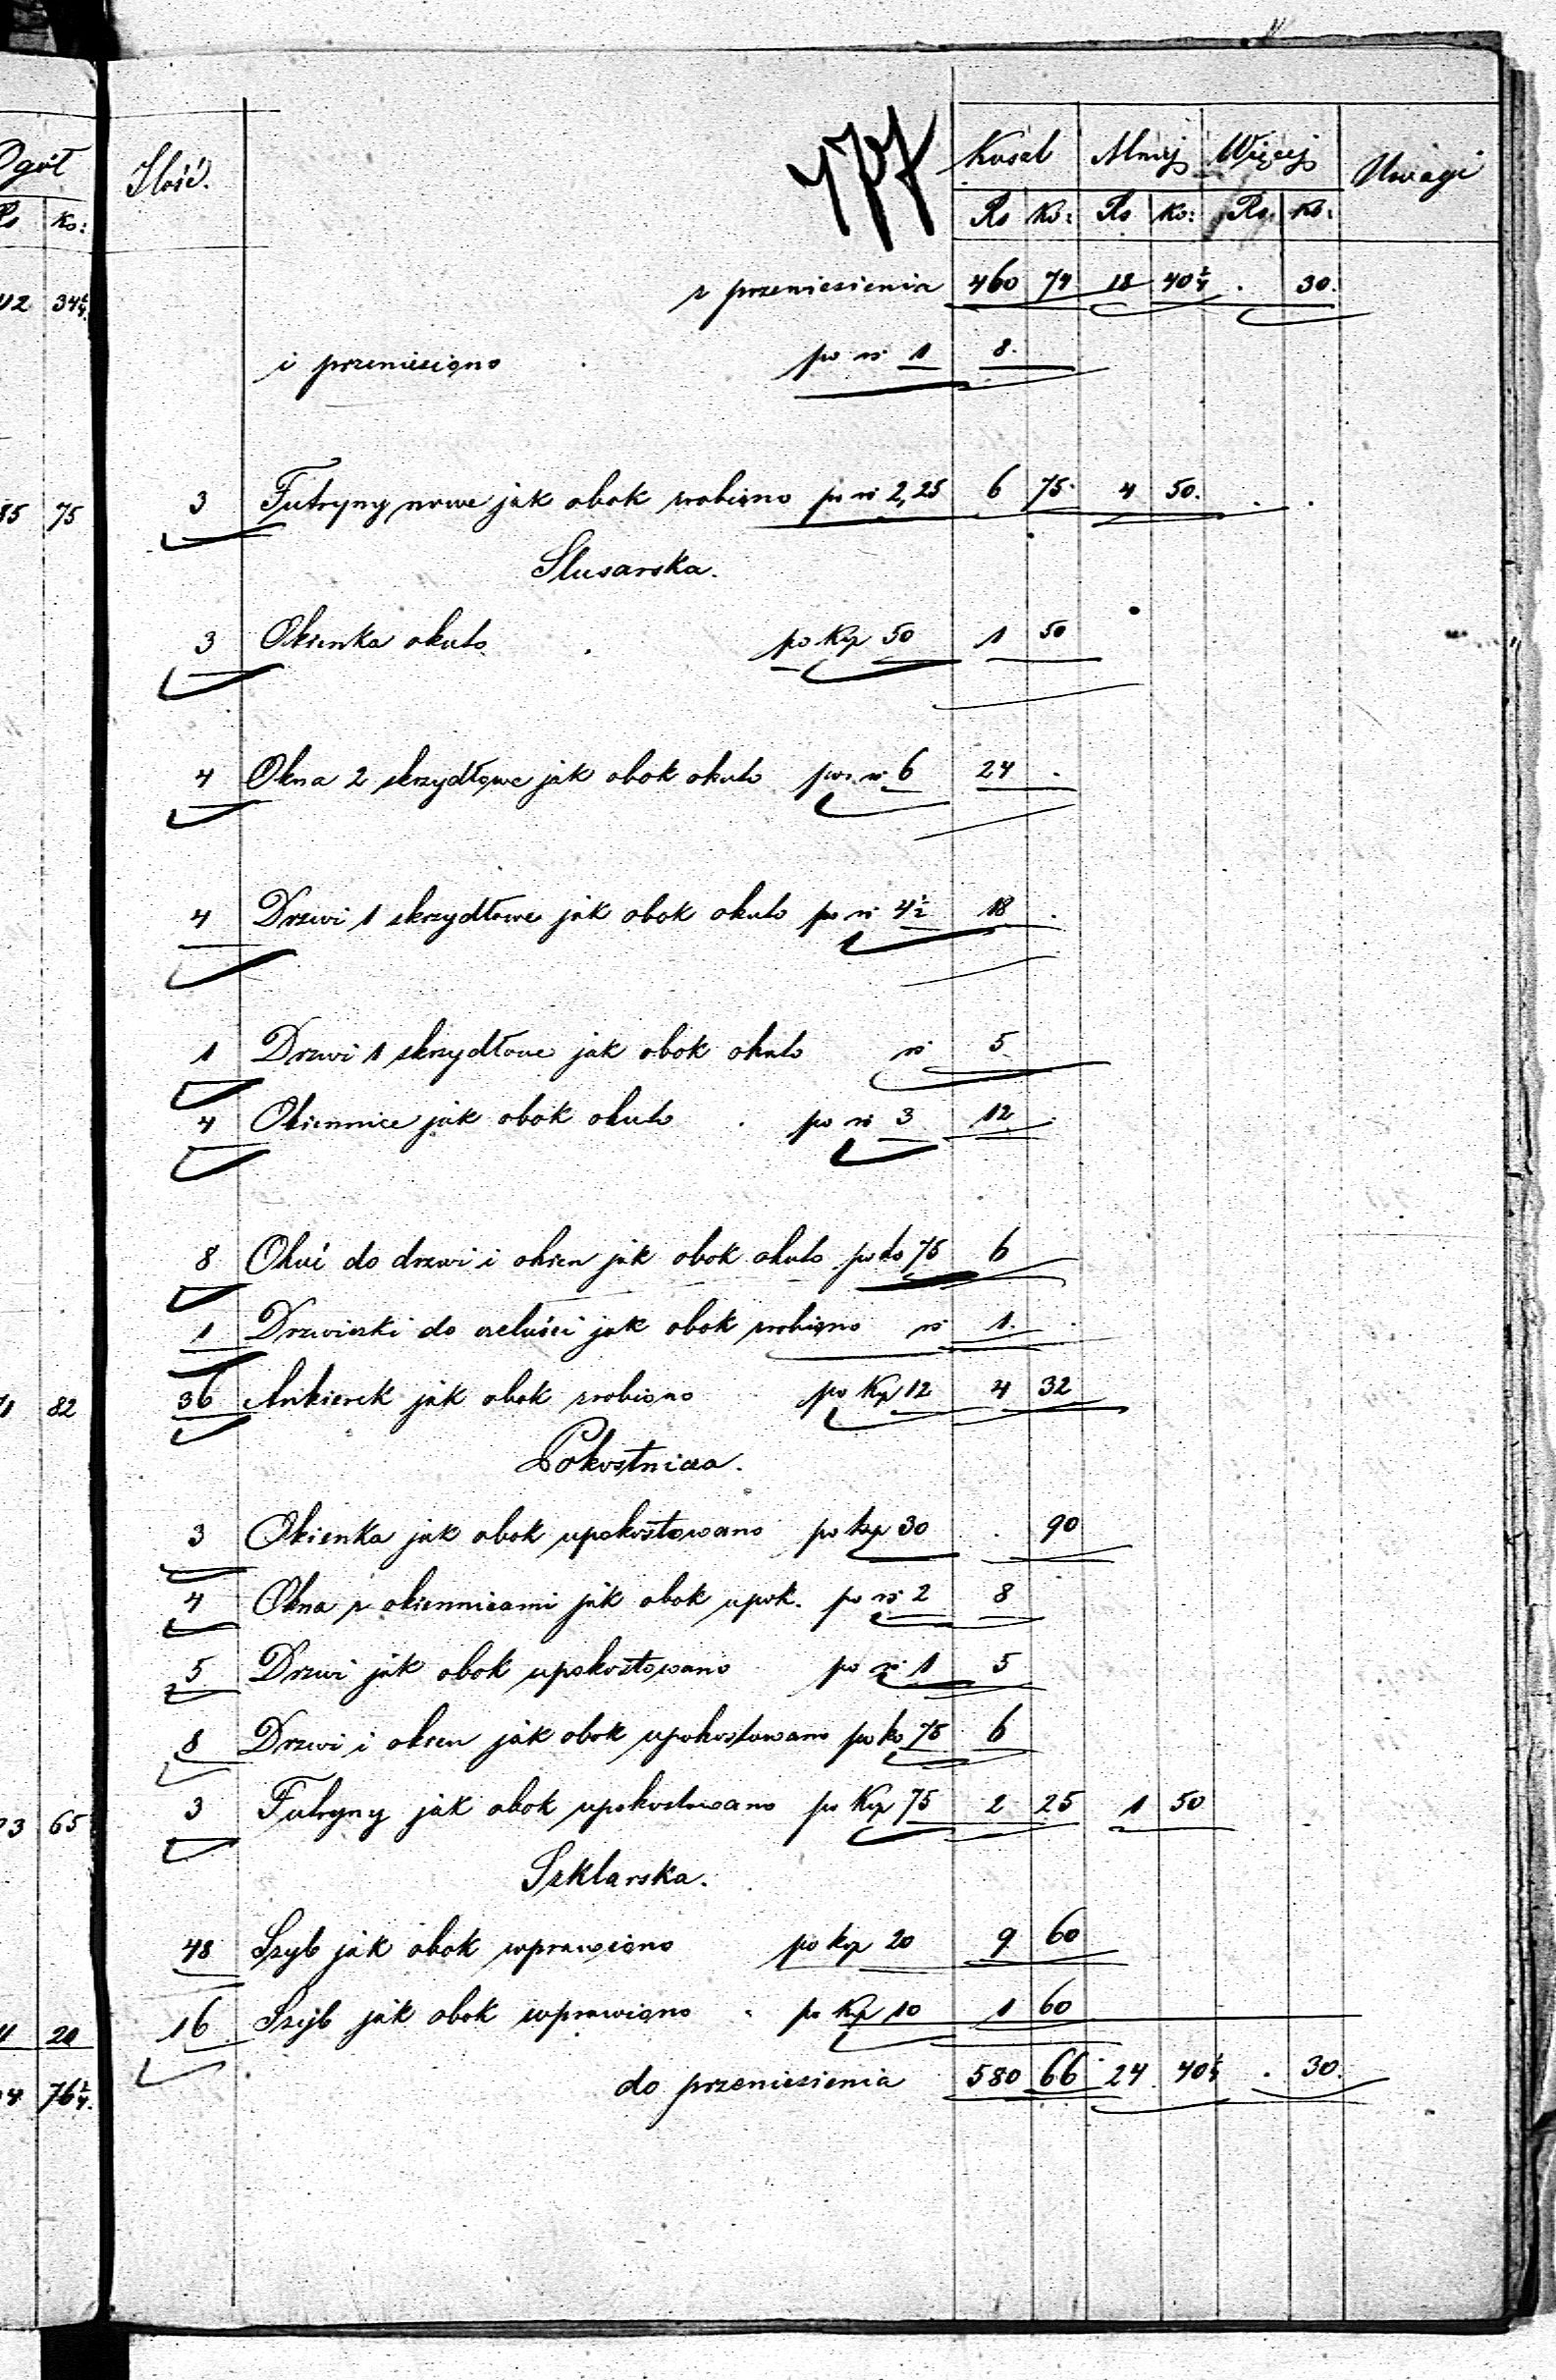 Ogół
Rs Ko:
112 34 2/4.
35 75
1 82
23 65
11 20
4 76 2/4.
477
Ilość. Koszt Mniej Więcej Uwagi
Rs Ko: Rs Ko: Rs Ko:
z przeniesienia 460 74 18 40 2/4 . 30.
i przeniesiono po rs 1 8.
3 Futryny nowe jak obok zrobiono po rs 2,25 6 75. 4 50. . .
Slusarska.
3 Okienka okuto po Kop 50 1 50
4 Okna 2 skrzydłowe jak obok okuto po rs 6 24 .
4 Drzwi 1 skrzydłowe jak obok okuto po rs 4 1/2 18 .
1 Drzwi 1 skrzydłowe jak obok okuto rs 5
4 Okiennice jak obok okuto . po rs 3 12 .
8 Okuć do drzwi i okien jak obok okuto po ko 75 6
1 Drzwiczki do czeluści jak obok zrobiono rs 1. .
36 Ankierek jak obok zrobiono po Kop 12 4 32
Pokostnicza.
3 Okienka jak obok upokostowano po kop 30 . 90
4 Okna z okiennicami jak obok upok. po rs 2 8
5 Drzwi jak obok upokostowano po rs 1 5
8 Drzwi i okien jak obok upokostowano po ko 75 6
3 Futryny jak obok upokostowano po Kop 75 2 25 1 50
Szklarska.
48 Szyb jak obok wprawiono po kop 20 9 60
16 Szyb jak obok wprawiono po Kop 10 1 60
do przeniesienia 580 66 24 40 2/4 . 30.